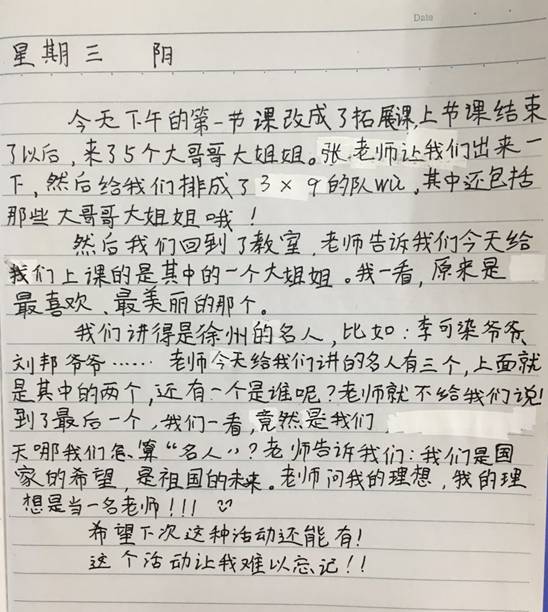 Date
星期三 阴
今天下午的第一节课改成了拓展课,上节课结束
了以后,来了5个大哥哥大姐姐。张老师让我们出来一
下,然后给我们排成了3×9的队wu,其中还包括
那些大哥哥大姐姐哦!
然后我们回到了教室,老师告诉我们今天给
我们上课的是其中的一个大姐姐。我一看,原来是
最喜欢、最美丽的那个。
我们讲得是徐州的名人,比如:李可染爷爷、
刘邦爷爷……老师今天给我们讲的名人有三个,上面就
是其中的两个,还有一个是谁呢?老师就不给我们说!
到了最后一个,我们一看,竟然是我们,
天哪我们怎算“名人”?老师告诉我们:我们是国
家的希望,是祖国的未来。老师问我的理想,我的理
想是当一名老师!!!
希望下次这种活动还能有!
这个活动让我难以忘记!!